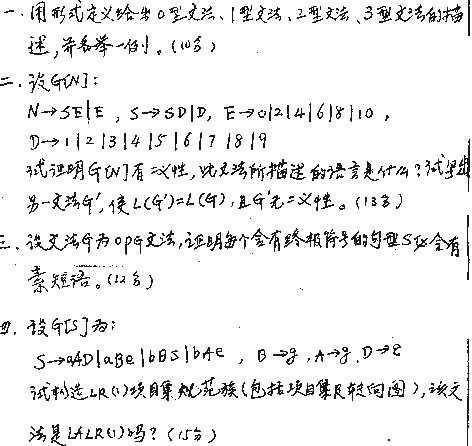 一.用形式定义给出0型文法、1型文法、2型文法、3型文法的描
述,并各举一例。(10分)
二.设G[N]:
N→SE|E , S→SD|D, E→0|2|4|6|8|10 ,
D→1|2|3|4|5|6|7|8|9
试证明G[N]有二义性,此文法所描述的语言是什么?试写出
另一文法G′,使L(G′)=L(G),且G′无二义性。(13分)
三.设文法G为OPG文法,证明每个含有终极符号的句型S必含有
素短语。(12分)
四.设G[S]为:
S→aAD|aBe|bBS|bAe , B→g, A→g, D→e
试构造LR(1)项目集规范族(包括项目集及转向图),该文
法是LALR(1)吗?(15分)